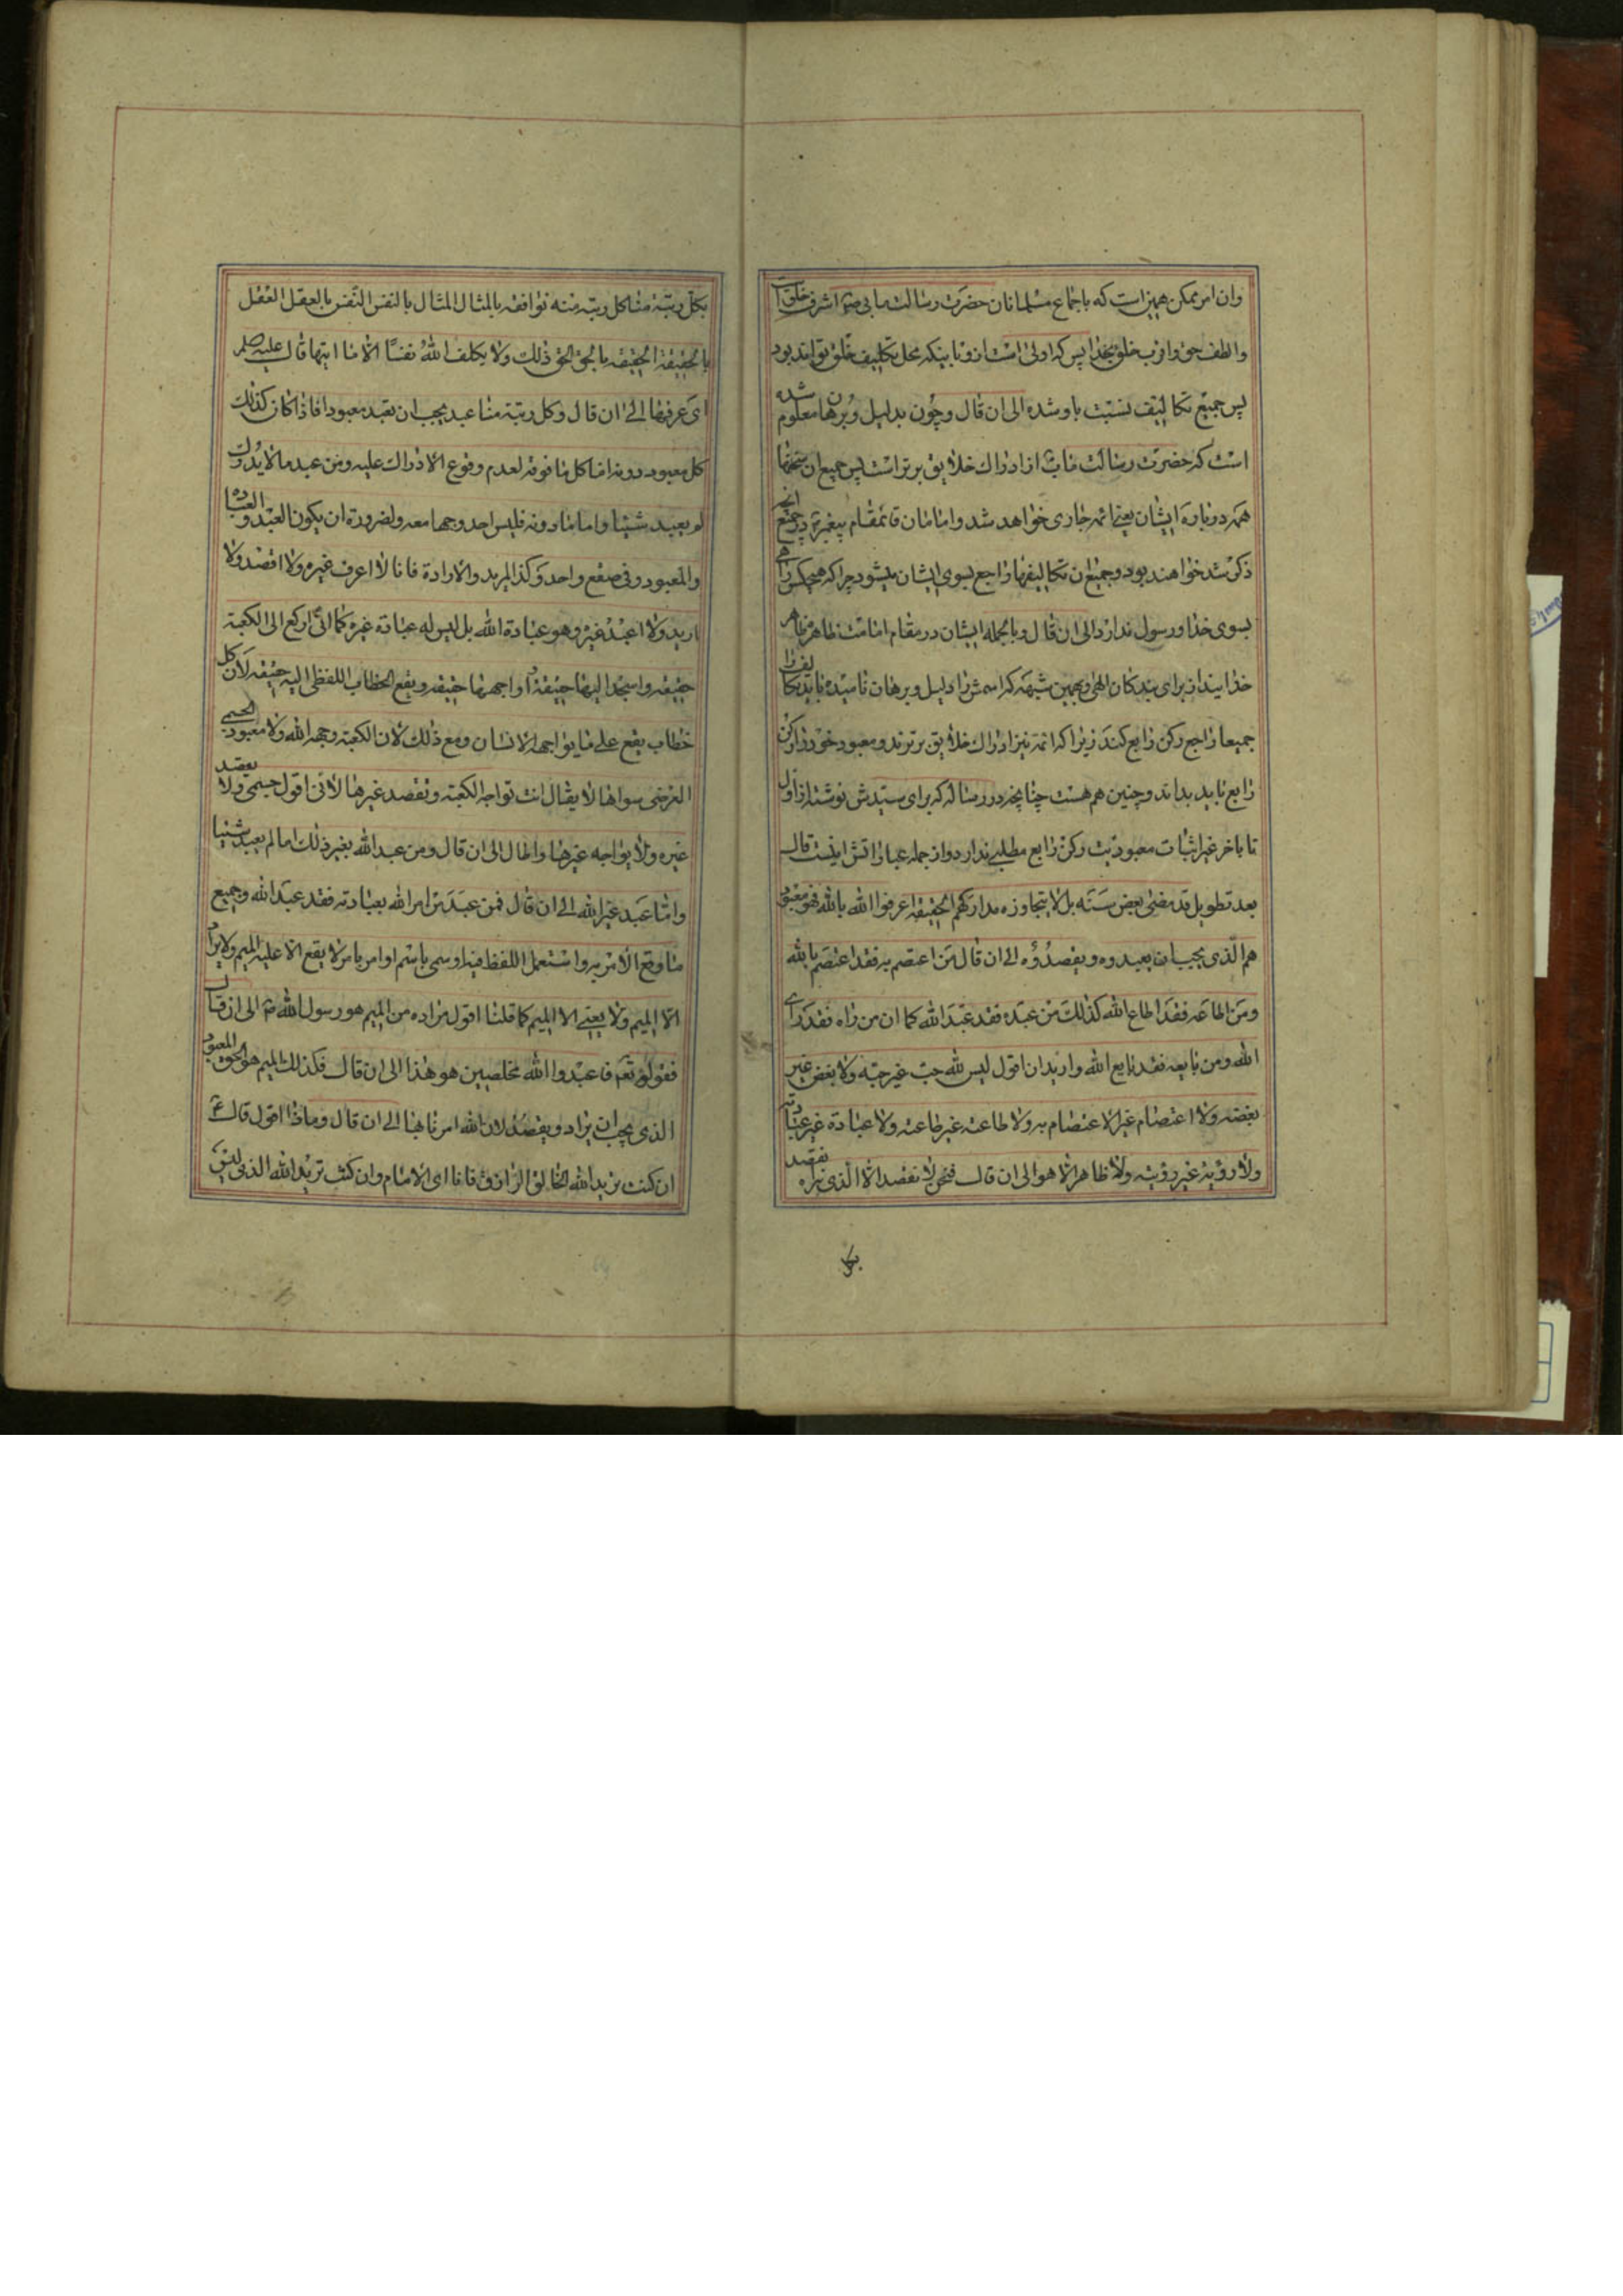 وان امر ممکن همین است که باجماع مسلمانان حضرت رسالت مابی صم اشرف خلق است
والطف حق واقرب خلق بخدا پس که اولی است ازو باینکه محل تکلیف خلق تواند بود
پس جمیع تکالیف نسبت باو شده الی ان قال وچون بدلیل وبرهان معلوم شده
است که حضرت رسالت ماب از ادراک خلایق برتر است پس جمیع ان سخنها
همه درباره ایشان یعنی ائمه جاری خواهد شد وامامان قائمقام پیغمبرند در جمیع انچه
ذکر شد خواهند بود وجمیع ان تکالیفها راجع بسوی ایشان میشود چرا که هیچکس راهی
بسوی خدا ورسول ندارد الی ان قال وبالجمله ایشان در مقام امامت ظاهر مظاهر
خدایند از برای بندگان الهی وبهمین شبهه که اسمش را دلیل وبرهان نامیده باید تکالیف را
جمیعا راجع برکن رابع کند زیرا که ائمه نیز از ادراک خلایق برترند ومعبود خود را رکن
رابع باید بداند وچنین هم هست چنانچه در رساله که برای سیدش نوشته از اول
تا باخر غیر اثبات معبودیت رکن رابع مطلبی ندارد واز جمله عباراتش اینست قال
بعد تطویل قد مضی بعض سته بل لا یتجاوزه مدارکهم الحقیقه اعرفوا الله بالله فهو معبود
هم الذی یجب ان یعبدوه ویقصدوه الی ان قال من اعتصم به فقد اعتصم بالله
ومن اطاعه فقد اطاع الله کذلک من عبده فقد عبد الله کما ان من راه فقد رای
الله ومن بایعه فقد بایع الله وارید ان اقول لیس لله حب غیر حبه ولا بغض غیر
بغضه ولا اعتصام غیر الاعتصام به ولا طاعة غیر طاعته ولا عبادة غیر عبادته
ولا رؤیة غیر رؤیته ولا ظاهر الا هو الی ان قال فنحن لا نقصد الا الذی نراه
بکل
بکل رتبة منا کل رتبه منه توافقه بالمثال المثال بالنفس النفس بالعقل العقل
بالحقیقة الحقیقه بالحق الحق ذلک ولا یکلف الله نفسا الا ما اتیها قال علیه
ای عرفها الی ان قال وکل رتبة منا عبد یجب ان یقصد معبودا فاذا کان کذلک
کل معبود دونه اما کل ما فوقه لعدم وقوع الادراک علیه ومن عبد ما لا یدرک
لم یعبد شیئا واما ما دونه فلیس احد وجها معه ولضرورة ان یکون العبد والعبادة
والمعبود فی صقع واحد وکذا المرید والارادة فانا لا اعرف غیره ولا اقصد ولا
ارید ولا اعبد غیره وهو عبادة الله بل لیس له عبادة غیره کما انی ارکع الی الکعبة
حقیقه واسجد الیها حقیقة اواجهها حقیقه ویقع الخطاب اللفظی الیه حقیقه لان کل
خطاب یقع علی ما یواجهه الانسان ومع ذلک لان الکعبه وجه الله ولا معبود لجسمی
الغرضی سواها لا یقال انت تواجه الکعبه وتقصد غیرها لانی اقول جسمی ولا یقصد
غیره ولا یواجه غیرها واطال الی ان قال ومن عبد الله بغیر ذلک اما لم یعبد شیئا
واما عبد غیر الله الی ان قال فمن عبد من امر الله بعبادته فقد عبد الله وجمیع
ما وقع الامر به واستعمل اللفظ فیه اوسمی باسم او امر بامر لا یقع الا علیه المیم ولا یراد
الا المیم ولا یعنی الا المیم کما قلنا اقول مراده من المیم هو رسول الله ص الی ان قال
فقوله تع فاعبدوا الله مخلصین هو هذا الی ان قال فکذلک المیم هو المعبود
الذی یجب ان یراد ویقصد لان الله امرنا بهذا الی ان قال وماذا اقول قال ع
ان کنت ترید الله الخالق الرازق فانا ای الامام وان کنت ترید الله الذی